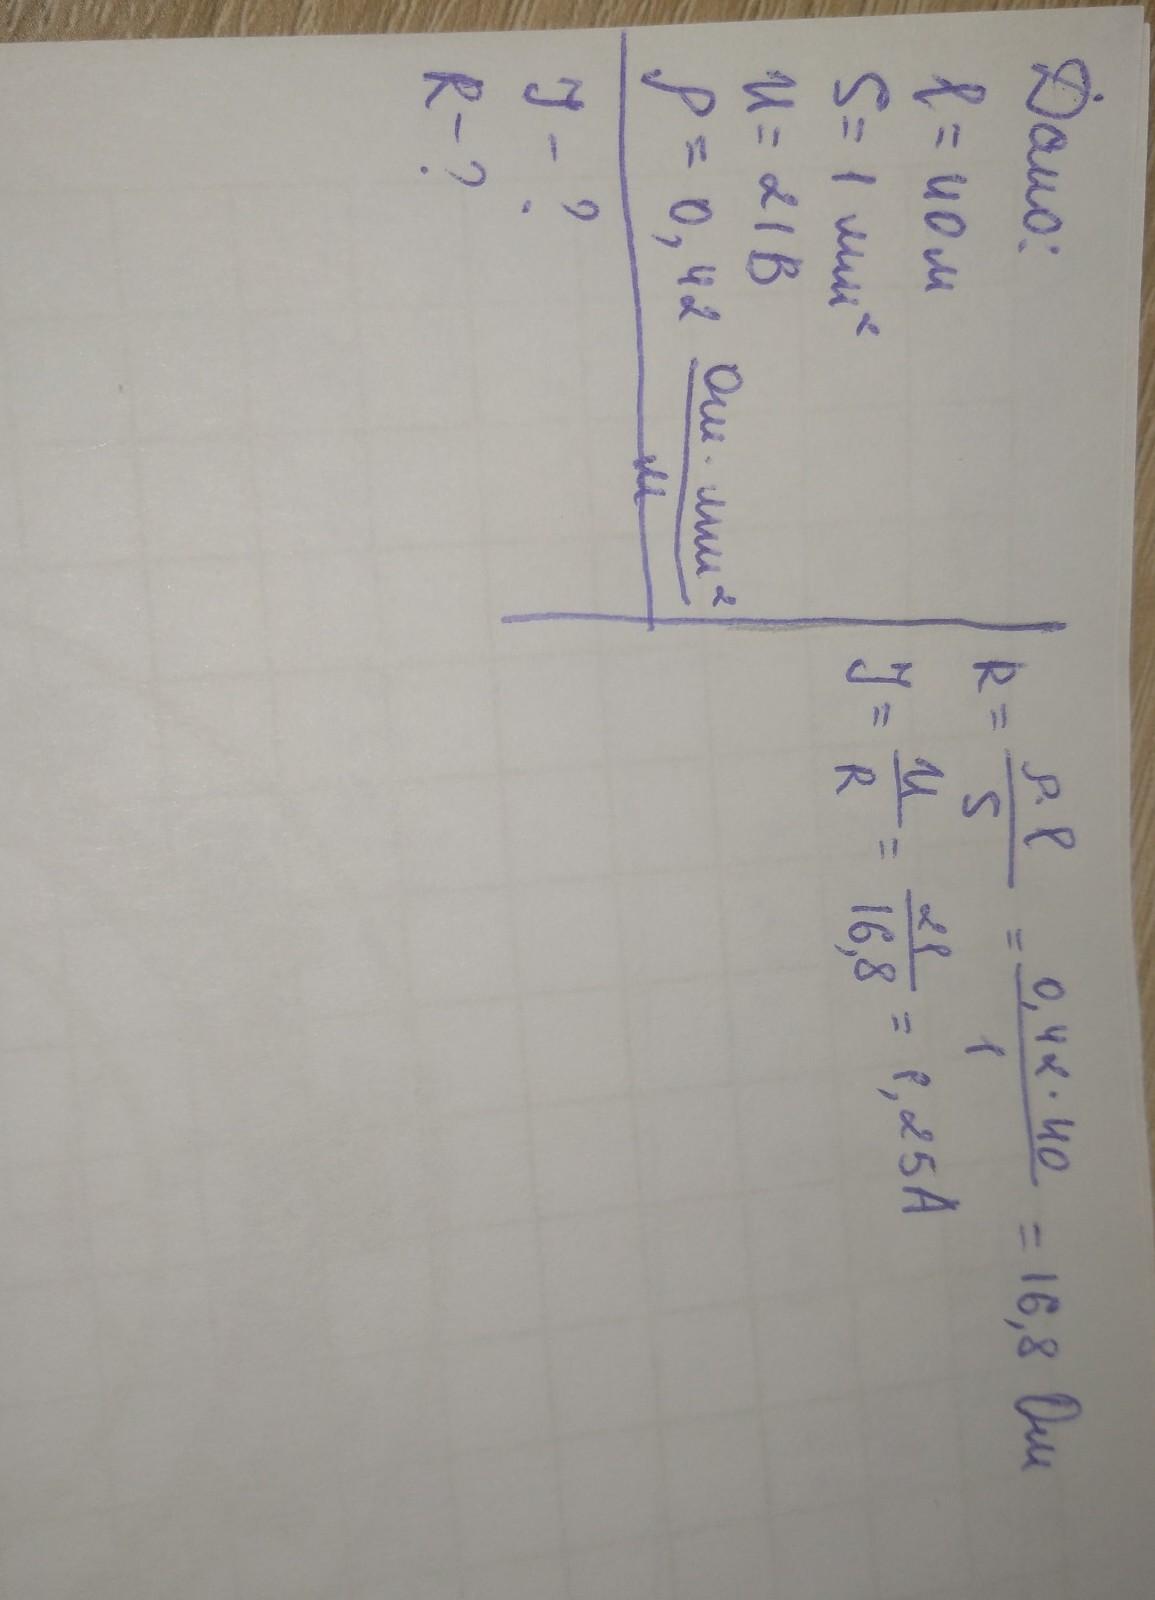 Дано:
l = 40 м
S = 1 мм²
U = 21 В
ρ = 0,42 Ом · мм² / м
J - ?
R - ?
R = ρ · l / S = 0,42 · 40 / 1 = 16,8 Ом
J = U / R = 21 / 16,8 = 1,25 А